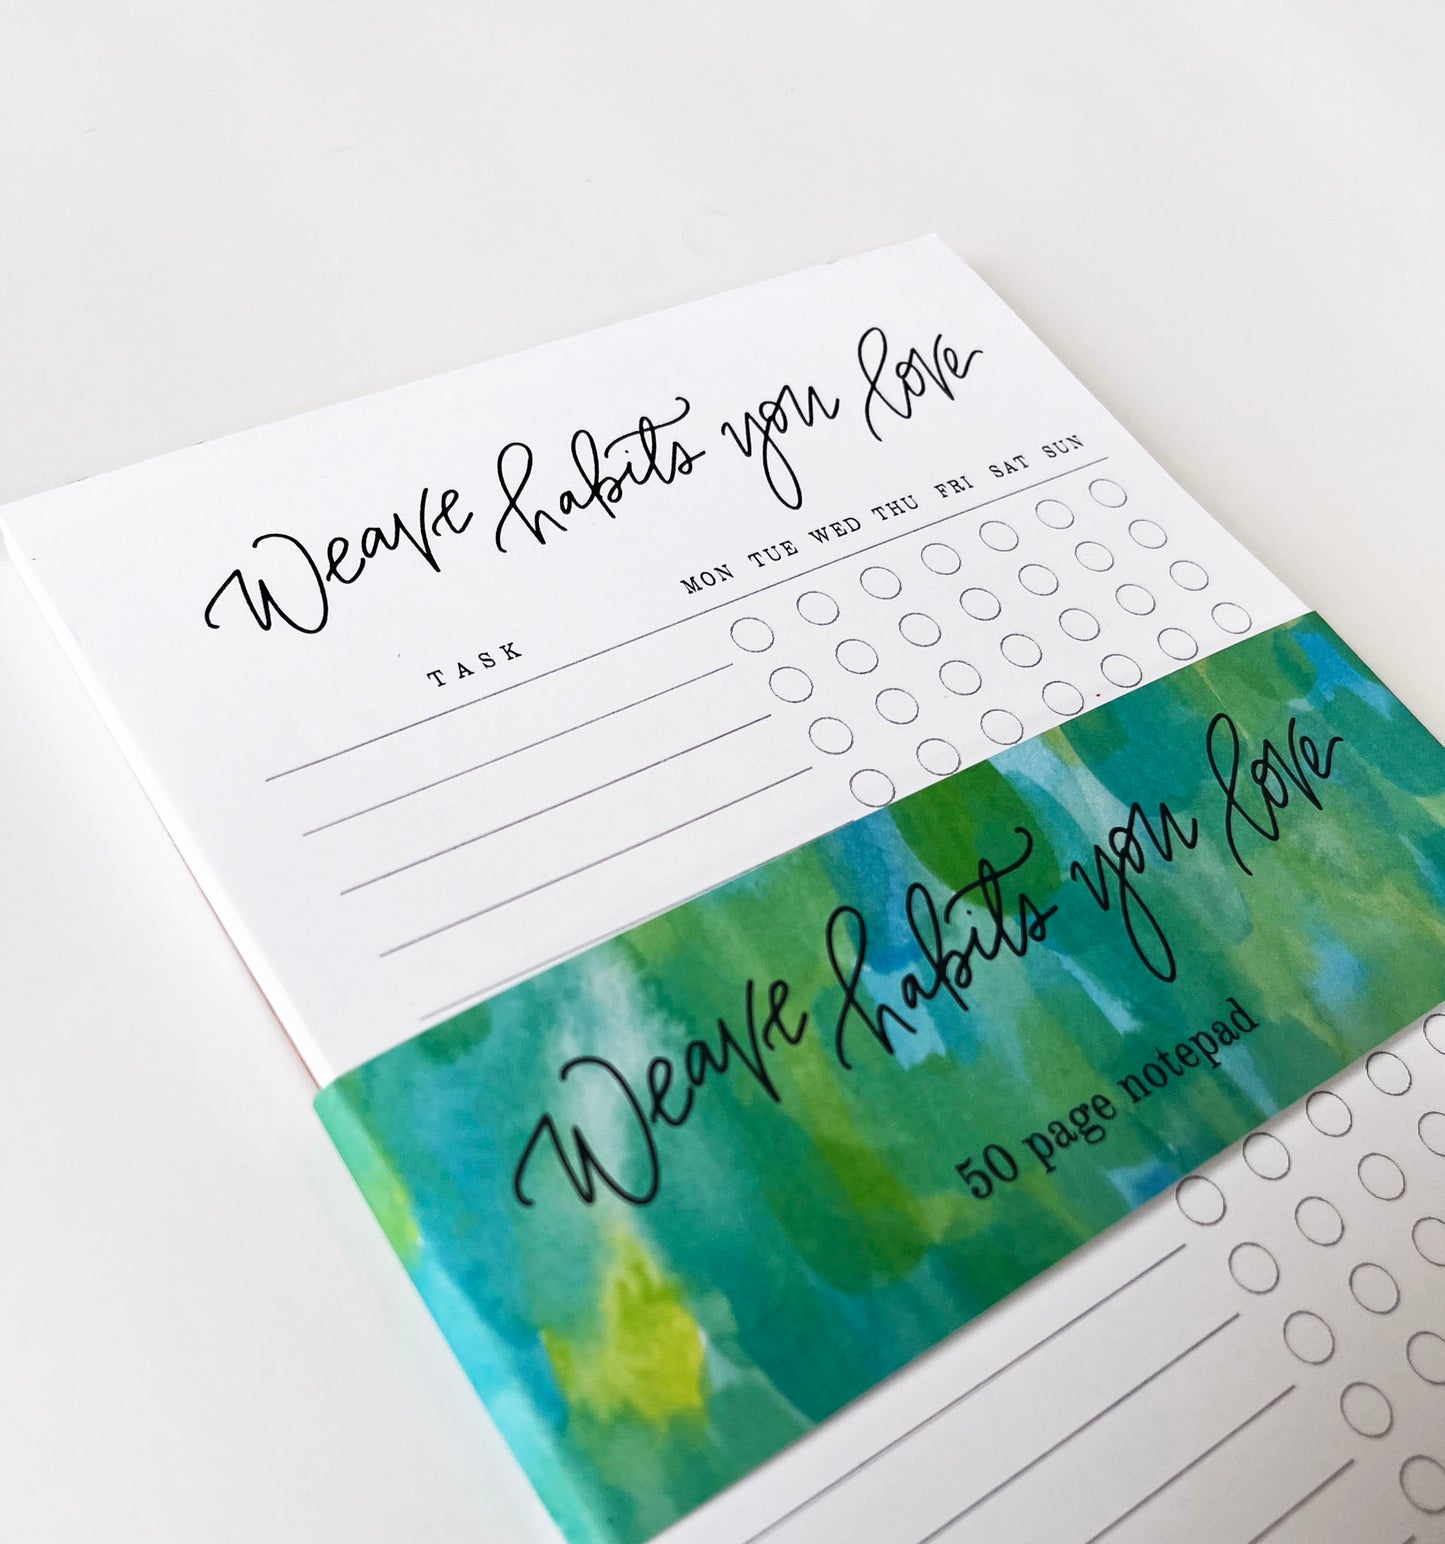 Weave habits you love
TASK MON TUE WED THU FRI SAT SUN
Weave habits you love
50 page notepad